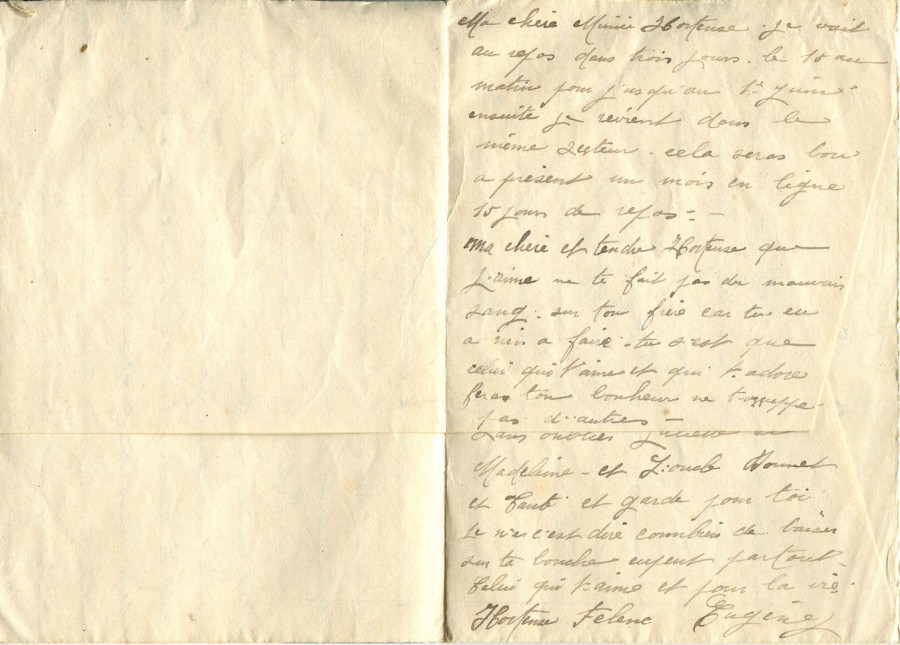 Ma chère Mimi Hortense. je vait
au repos dans trois jours. le 15 au
matin pour j'usqu'au 1er Juin-
ensuite je revient dans le
même secteur - cela seras bon
a présent un mois en ligne
15 jours de repos = -
ma chère et tendre Hortense que
j'aime ne te fait pas de mauvais
sang. sur ton frère car tu en
a rien a faire. tu s'est que
celui qui t'aime et qui t'adore
feras ton bonheur ne t'occuppe-
pas d'autres -
Sans oublier
Madeleine - et L'oncle Bonnet
et Tante et garde pour toi
Je n'es c'est dire connbien de baiser
sur ta bouche enfent partout-
Celui qui t'aime et pour la vie.
Hortense Felenc Eugène